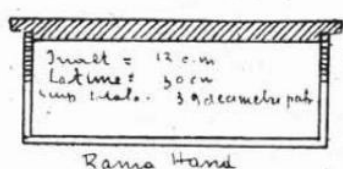 Inalt = 12 c.m
Latime = 30 cm
Sup. totala. 39 decimetre patr.
Rama Hand